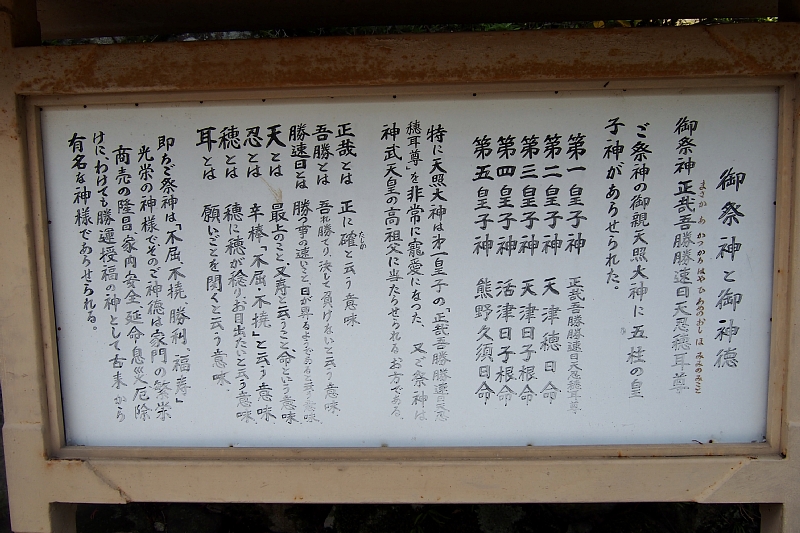 御祭神と御神徳
御祭神 正哉吾勝勝速日天忍穂耳尊
まさかあかつかちはやひあめのおしほみみのみこと
ご祭神の御親天照大神に五柱の皇
子神があらせられた。
第一皇子神 正哉吾勝勝速日天忍穂耳尊
第二皇子神 天津穂日命
第三皇子神 天津日子根命
第四皇子神 活津日子根命
第五皇子神 熊野久須日命
特に天照大神は第一皇子の「正哉吾勝勝速日天忍
穂耳尊」を非常に寵愛になった、又ご祭神は
神武天皇の高祖父に当たらせられるお方である。
正哉とは 正に確と云う意味
たしか
吾勝とは 吾れ勝てり、決して負けないと云う意味
勝速日とは 勝つ事の速いこと日が昇るようであると云う意味
天とは 最上のこと又寿と云うこと命という意味
忍とは 辛棒「不屈・不撓」と云う意味
穂とは 穂に穂が稔りお目出たいと云う意味
耳とは 願いごとを聞くと云う意味
即ちご祭神は「不屈不撓、勝利、福寿」
光栄の神様でそのご神徳は家門の繁栄
商売の隆昌家内安全延命息災厄除
けにわけても勝運授福の神として古来から
有名な神様であらせられる。